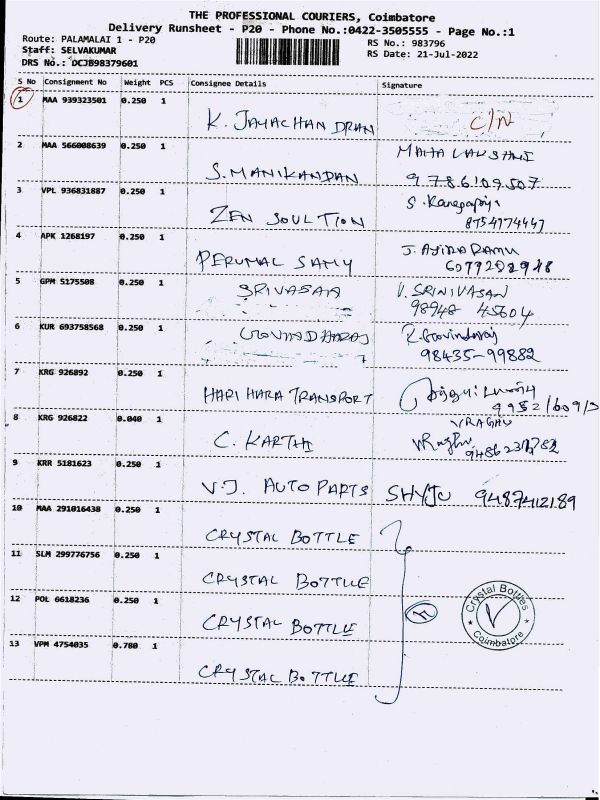 THE PROFESSIONAL COURIERS, Coimbatore
Delivery Runsheet - P20 - Phone No.:0422-3505555 - Page No.:1
Route: PALAMALAI 1 - P20
RS No.: 983796
Staff: SELVAKUMAR
RS Date: 21-Jul-2022
DRS No.: DCJB98379601
S No Consignment No Weight PCS Consignee Details Signature
1 MAA 939323501 0.250 1
K. JAYACHANDRAN C/N
2 MAA 566008639 0.250 1 MAHA LAKSHMI
S. MANIKANDAN 9786109507
3 VPL 936831887 0.250 1
ZEN SOULTION 8754174447
4 APK 1268197 0.250 1
PERUMAL SAMY
5 GPM 5175508 0.250 1 SRIVASAA V. SRINIVASAN
98948 45604
6 KUR 693758568 0.250 1 GOVINDHARAJ R. Govindaraj
98435-99882
7 KRG 926892 0.250 1
HARI HARA TRANSPORT
8 KRG 926822 0.040 1 VRAGHU
C. KARTHI VRaghu
9 KRR 5181623 0.250 1
V.J. AUTO PARTS SHYJU 9487412189
10 MAA 291016438 0.250 1
CRYSTAL BOTTLE
11 SLM 299776756 0.250 1
CRYSTAL BOTTLE
12 POL 6618236 0.250 1
CRYSTAL BOTTLE
Crystal Bottles
Coimbatore
13 VPM 4754035 0.780 1
CRYSTAL BOTTLE